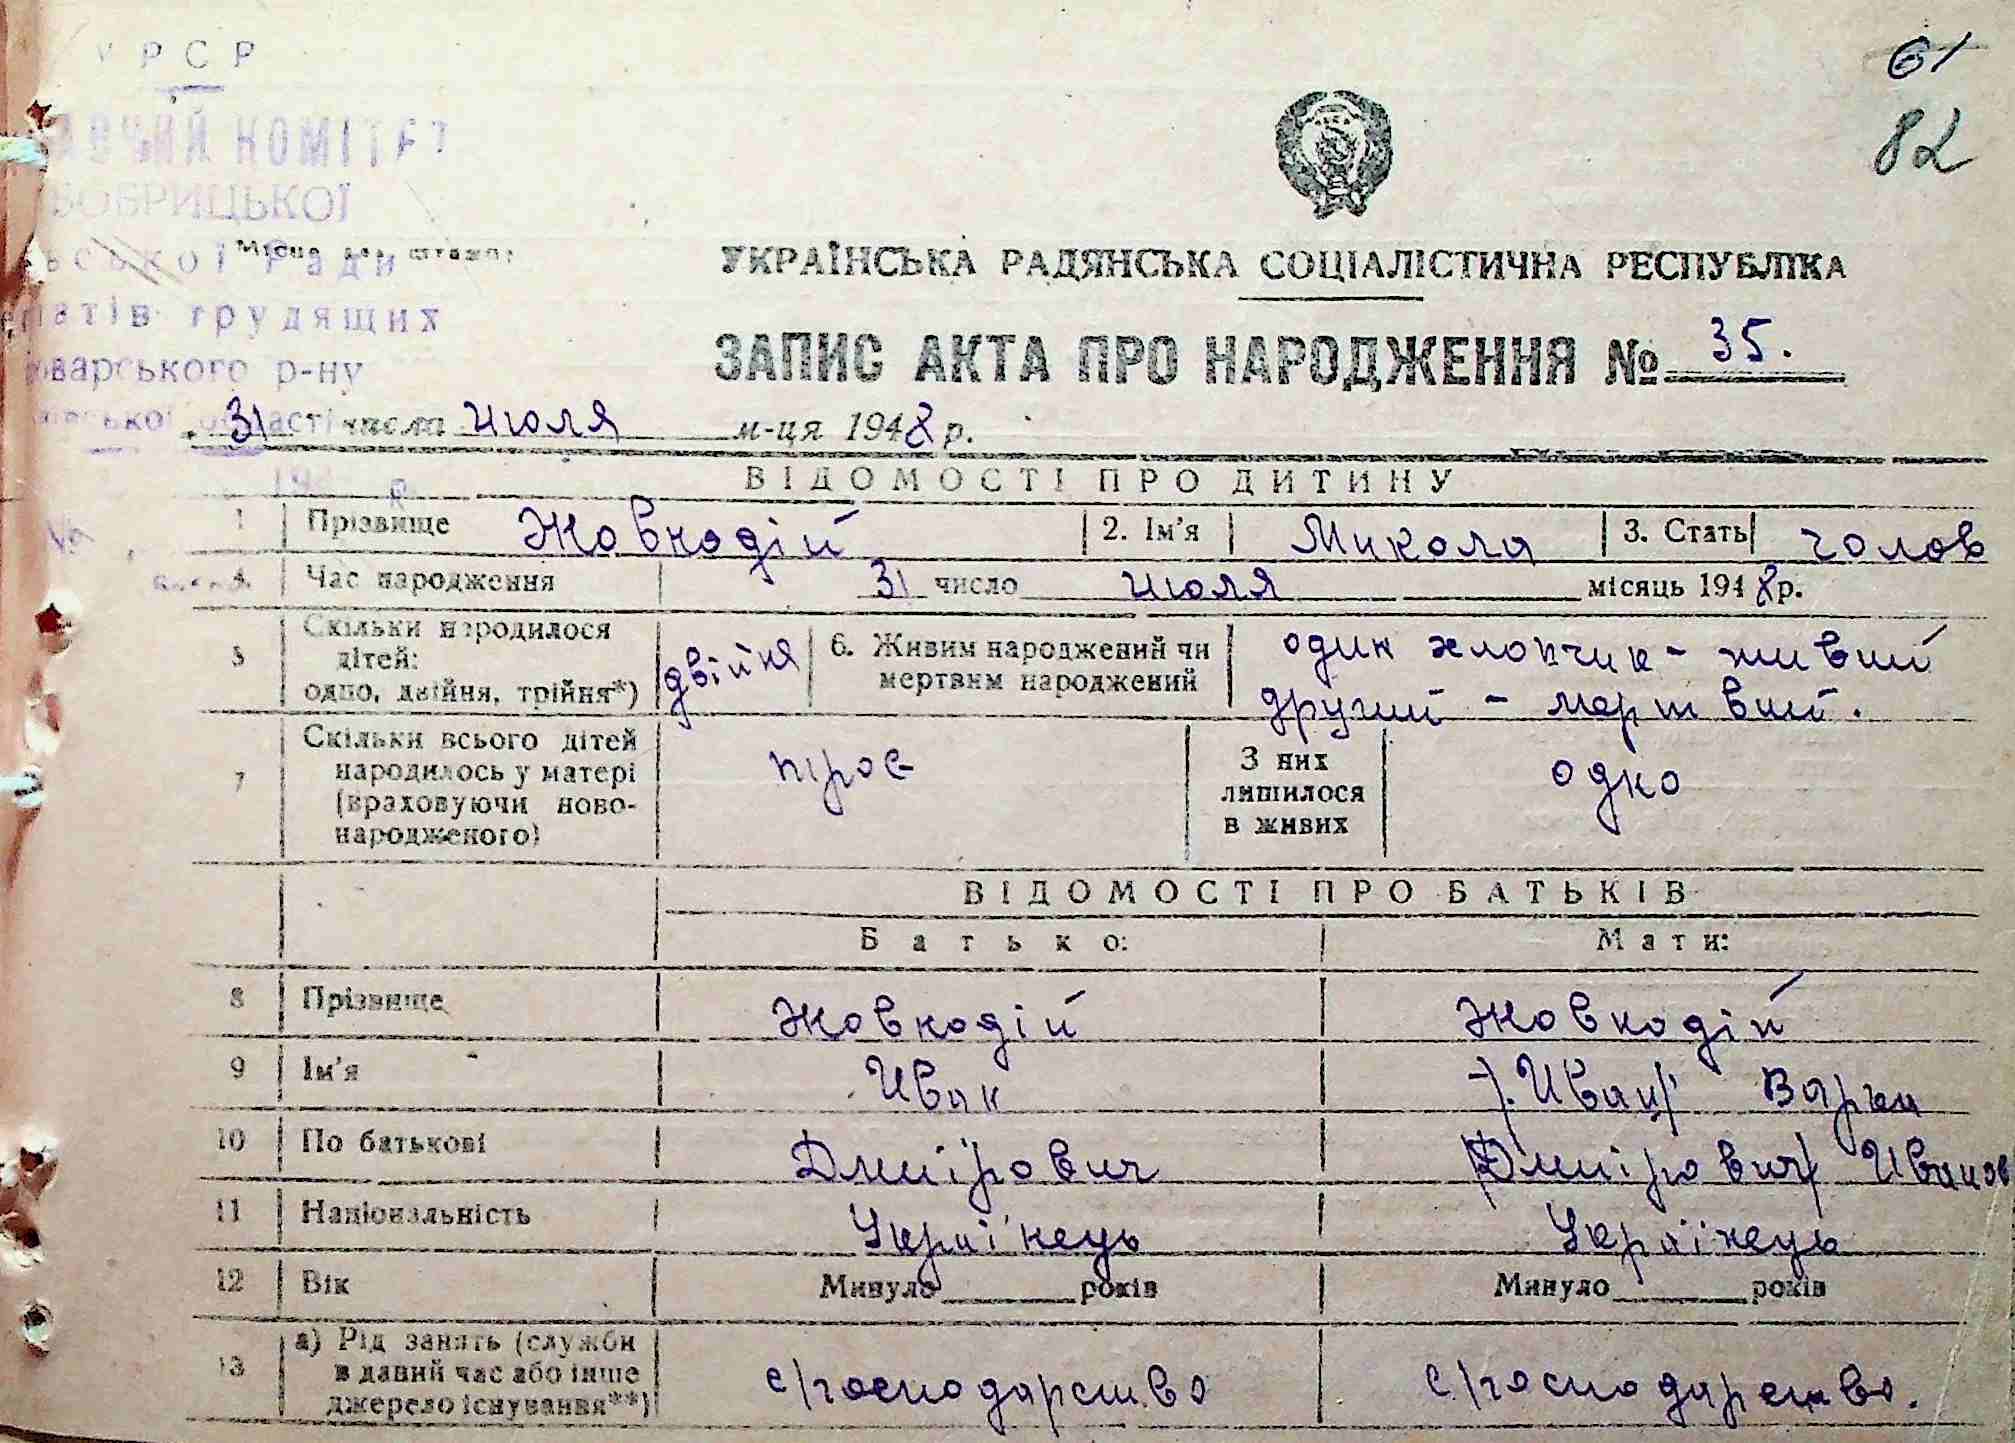 УРСР
61
82
КОМІТЕТ
БОБРИЦЬКОЇ
Місце для штампа:
Ради
трудящих
р-ну
області
УКРАЇНСЬКА РАДЯНСЬКА СОЦІАЛІСТИЧНА РЕСПУБЛІКА
ЗАПИС АКТА ПРО НАРОДЖЕННЯ № 35.
31 числа июля м-ця 1948 р.
ВІДОМОСТІ ПРО ДИТИНУ
1 Прізвище Жовнодій 2. Ім'я Микола 3. Стать чолов
4. Час народження 31 число июля місяць 1948 р.
5 Скільки народилося дітей: одно, двійня, трійня*) двійня 6. Живим народжений чи мертвим народжений один хлопчик - живий
другий - мертвий.
7 Скільки всього дітей народилось у матері (враховуючи новонародженого) троє З них лишилося в живих одно
ВІДОМОСТІ ПРО БАТЬКІВ
Батько: Мати:
8 Прізвище Жовнодій Жовнодій
9 Ім'я Иван Иван Варка
10 По батькові Дмитрович Дмитрович Иванов
11 Національність Українець Українець
12 Вік Минуло років Минуло років
13 а) Рід занять (служби в даний час або інше джерело існування**) с/господарство с/господарство.